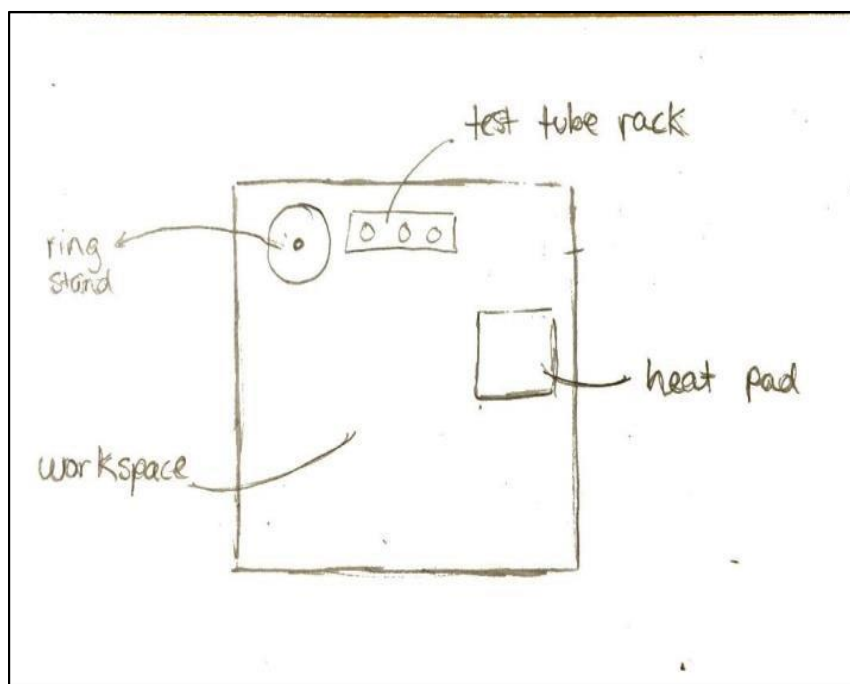 test tube rack
ring
stand
heat pad
workspace